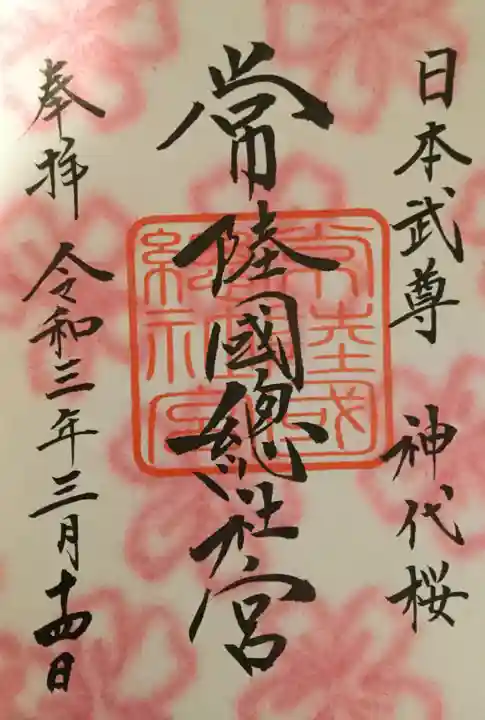 日本武尊 神代桜
常陸國總社宮
奉拝 令和三年三月十四日
常陸國總社宮